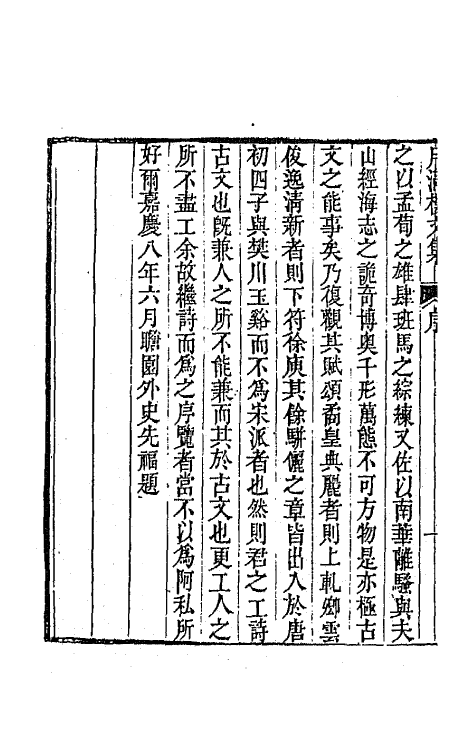 之以孟荀之雄肆班馬之綜練又佐以南華離騷與夫
山經海志之詭奇博奧千形萬態不可方物是亦極古
文之能事矣乃復觀其賦頌矞皇典麗者則上軋卿雲
俊逸清新者則下符徐庾其餘駢儷之章皆出入於唐
初四子與樊川玉谿而不為宋派者也然則君之工詩
古文也旣兼人之所不能兼而其於古文也更工人之
所不盡工余故繼詩而為之序覽者當不以為阿私所
好爾嘉慶八年六月瞻園外史先福題